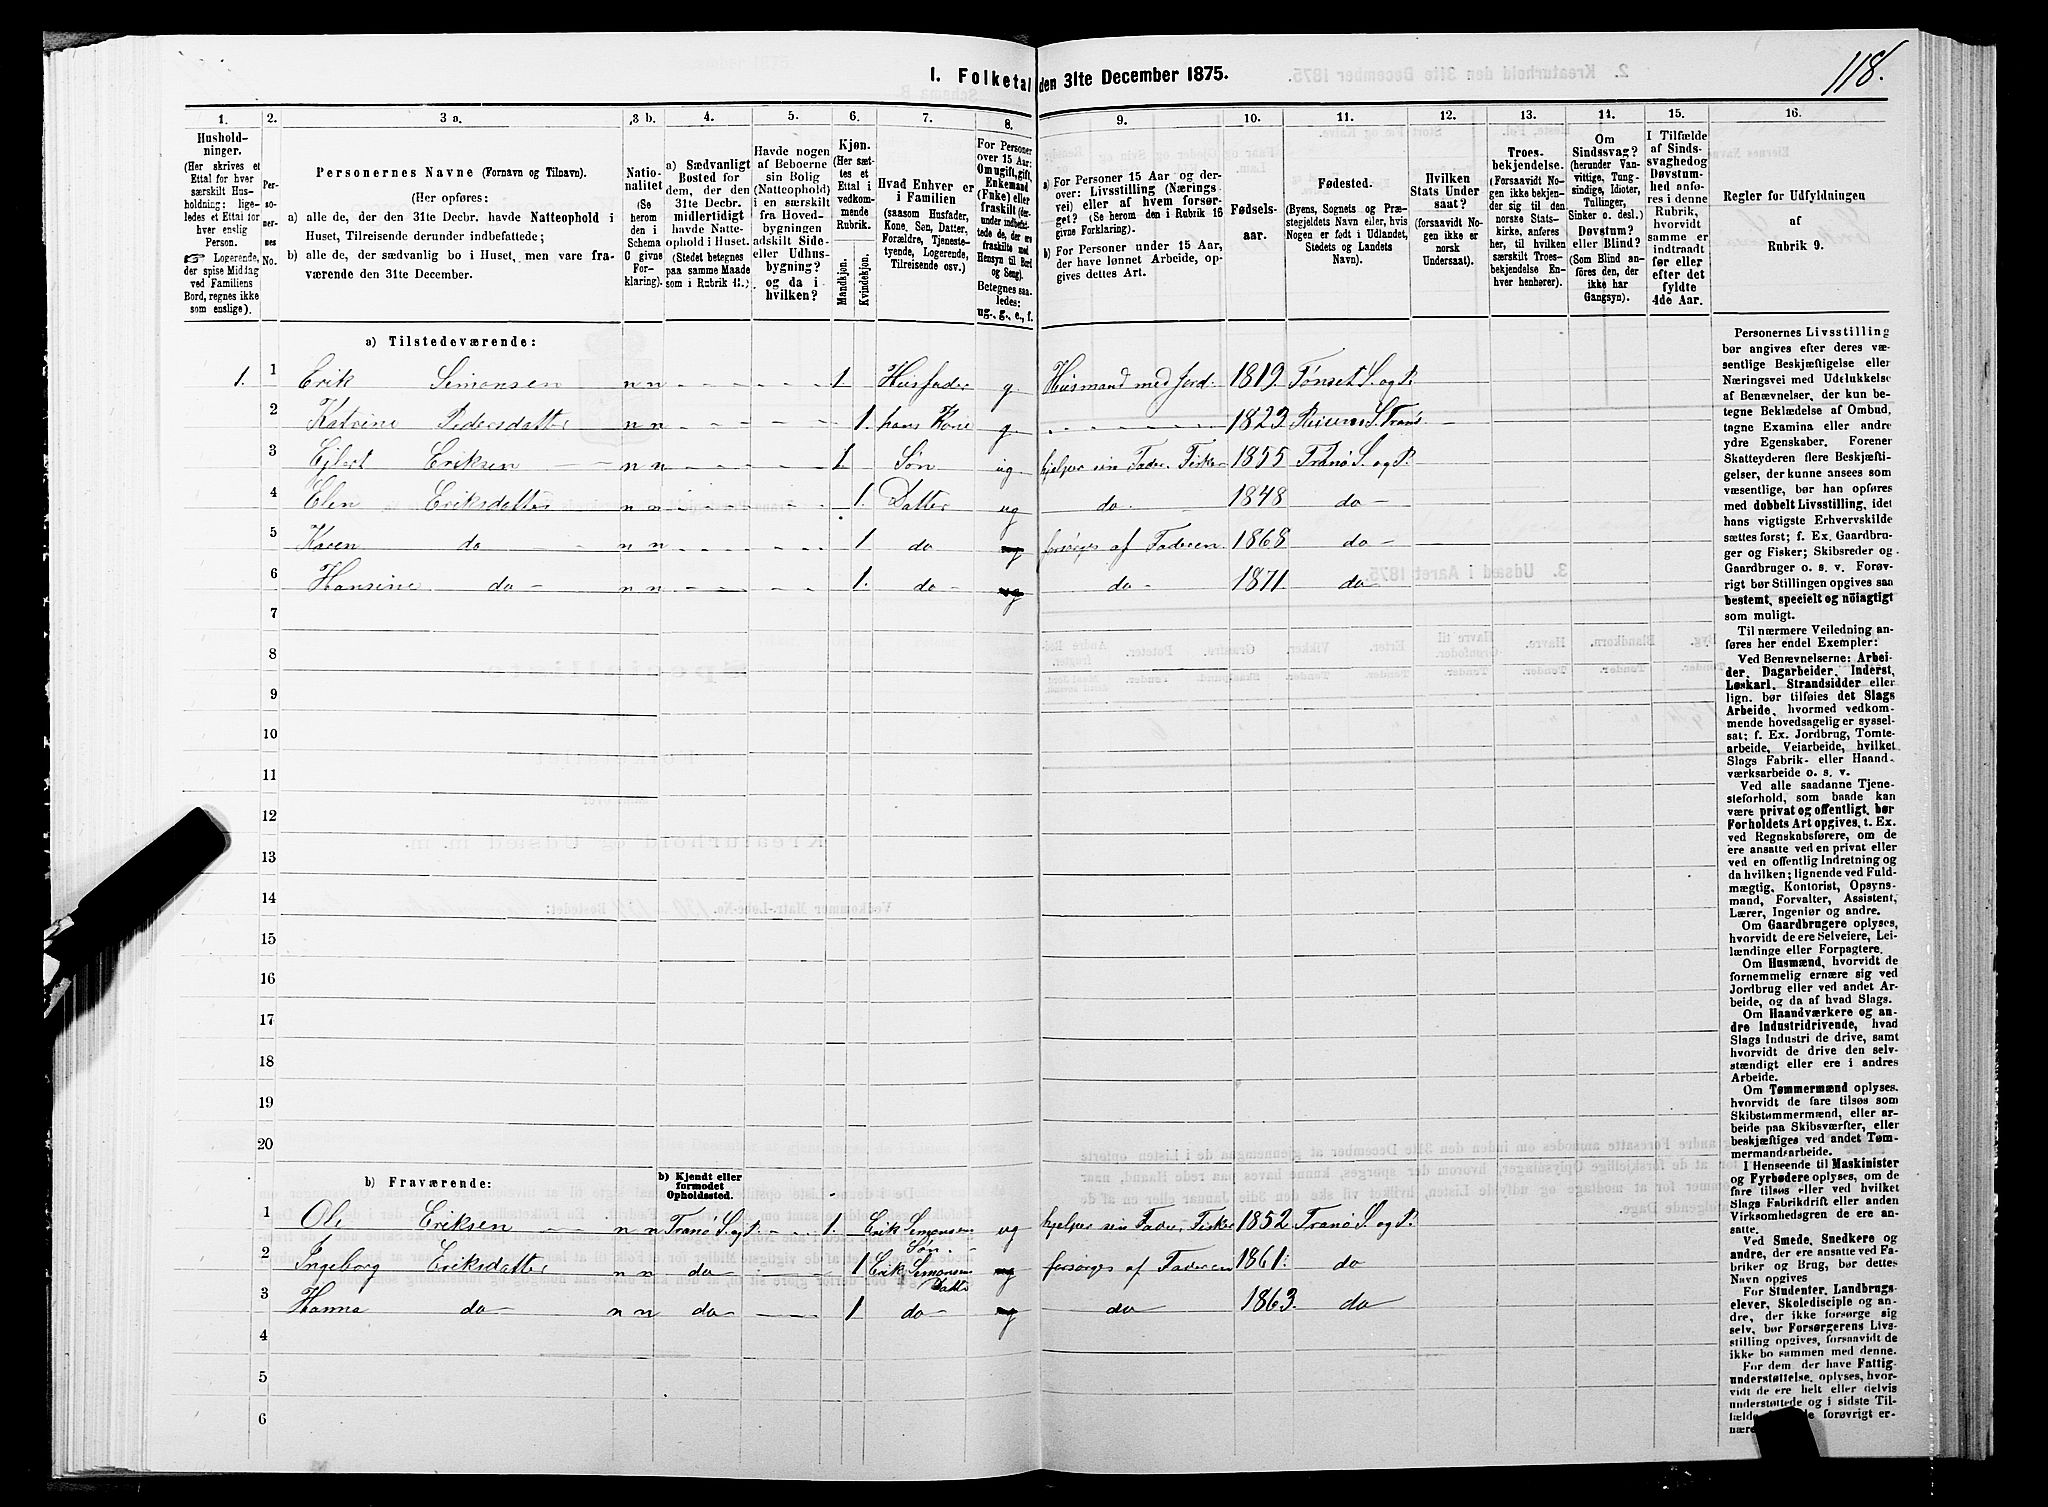 I. Folketal den 31te December 1875.
118.
1.
2.
3 a.
3 b.
4.
5.
6.
7.
8.
9.
10.
11.
12.
13.
14.
15.
16.
Hushold-
ninger.
(Her skrives et
Ettal for hver
særskilt Hus-
holdning; lige-
ledes et Ettal for
hver enslig
Person.
☞ Logerende,
der spise Middag
ved Familiens
Bord, regnes ikke
som enslige).
Per-
so-
ner-
nes
No.
Personernes Navne (Fornavn og Tilnavn).
(Her opføres:
a) alle de, der den 31te Decbr. havde Natteophold i
Huset, Tilreisende derunder indbefattede;
b) alle de, der sædvanlig bo i Huset, men vare fra-
værende den 31te December.)
Natio-
nalitet
(Se
herom
den i
Schema
C givne
For-
klaring).
a) Sædvanligt
Bosted for
dem, der den
31te Decbr.
midlertidigt
havde Natte-
ophold i Huset.
(Stedet betegnes
paa samme Maade
som i Rubrik 11.)
Havde nogen
af Beboerne
sin Bolig
(Natteophold)
i en særskilt
fra Hoved-
bygningen
adskilt Side-
eller Udhus-
bygning?
og da i
hvilken?
Kjøn.
(Her sæt-
tes et
Ettal i
vedkom-
mende
Rubrik.
Mandkjøn.
Kvindekjøn.
Hvad Enhver er
i Familien
(saasom Husfader,
Kone, Søn, Datter,
Forældre, Tjeneste-
tyende, Logerende,
Tilreisende osv.)
For Personer
over 15 Aar:
Om ugift, gift,
Enkemand
(Enke) eller
fraskilt (der-
under indbefat-
tede de, der ere
fraskilte med
Hensyn til Bord
og Seng).
Betegnes saa-
ledes:
ug., g., e., f.
a) For Personer 15 Aar og der-
over: Livsstilling (Nærings-
vei) eller af hvem forsør-
get? (Se herom den i Rubrik 16
givne Forklaring).
b) For Personer under 15 Aar,
der have lønnet Arbeide, op-
gives dettes Art.
Fødsels-
aar.
Fødested.
(Byens, Sognets og Præ-
stegjeldets Navn eller, hvis
Nogen er født i Udlandet,
Stedets og Landets
Navn).
Hvilken
Stats Under-
saat?
(forsaavidt No-
gen ikke er
norsk
Undersaat).
Troes-
bekjendelse.
(Forsaavidt No-
gen ikke bekjen-
der sig til den
norske Stats-
kirke, anføres
her, til hvilken
særskilt Troes-
bekjendelse En-
hver henhører).
Om
Sindssvag?
(herunder Van-
vittige, Tung-
sindige, Idioter,
Tullinger,
Sinker o. desl.)
Døvstum?
eller Blind?
(Som Blind an-
føres den, der
ikke har
Gangsyn).
I Tilfælde
af Sinds-
svaghed og
Døvstum-
hed anfø-
res i denne
Rubrik,
hvorvidt
samme er
indtraadt
før eller
efter det
fyldte
4de Aar.
Regler for Udfyldningen
af
Rubrik 9.
a) Tilstedeværende:
1. 1 Erik Simonsen n n 1 Husfader g Husmand med Jord. 1819 Tønset S. og P.
2 Katrine Pedersdatter n n 1. hans Kone g 1823
3 Ejlert Eriksen n n 1 Søn ug hjelper sin Fader. Fisker 1855 Tranø S. og P.
4 Elen Eriksdatter n n 1. Datter ug do 1848 do
5 Karen do n n 1 do ug forsørges af Faderen 1868 do
6 Hansine do n n 1. do ug do 1871 do
7
8
9
10
11
12
13
14
15
16
17
18
19
20
b) Fraværende:
b) Kjendt eller
formodet
Opholdssted.
1 Ole Eriksen n n Tranø S. og P. 1. Erik Simonsen Søn ug hjelper sin Fader, Fisker 1852 Tranø S. og P.
2 Ingeborg Eriksdatter n n do 1 Erik Simonsen Datter ug forsørges af Faderen 1861 do
3 Hanna do n n do 1 do ug do 1863 do
4
5
6
Personernes Livsstilling
bør angives efter deres væ-
sentlige Beskjæftigelse eller
Næringsvei med Udelukkelse
af Benævnelser, der kun be-
tegne Beklædelse af Ombud,
tagne Examina eller andre
ydre Egenskaber. Forener
Skatteyderen flere Beskjæfti-
gelser, der kunne ansees som
væsentlige, bør han opføres
med dobbelt Livsstilling, idet
hans vigtigste Erhvervskilde
sættes først; f. Ex. Gaardbru-
ger og Fisker; Skibsreder og
Gaardbruger o. s. v. Forøv-
rigt bør Stillingen opgives saa
bestemt, specielt og nöiagtigt
som muligt.
Til nærmere Veiledning an-
føres her endel Exempler:
Ved Benævnelserne: Arbei-
der, Dagarbeider, Inderst,
Løskarl, Strandsidder eller
lign. bør tilføies det Slags
Arbeide, hvormed vedkom-
mende hovedsagelig er syssel-
sat; f. Ex. Jordbrug, Tomte-
arbeide, Veiarbeide, hvilket
Slags Fabrik- eller Haand-
værksarbeide o. s. v.
Ved alle saadanne Tjene-
steforhold, som baade kan
være privat og offentligt, bør
Forholdets Art opgives, t. Ex.
ved Regnskabsførere, om de
ere ansatte ved en privat eller
ved en offentlig Indretning og
da hvilken; lignende ved Fuld-
mægtig, Kontorist, Opsyns-
mand, Forvalter, Assistent,
Lærer, Ingeniør og andre.
Om Gaardbrugere oplyses,
hvorvidt de ere Selveiere, Lei-
lændinge eller Forpagtere.
Om Husmænd, hvorvidt de
fornemmelig ernære sig ved
Jordbrug eller ved andet Ar-
beide, og da af hvad Slags.
Om Haandværkere og an-
dre Industridrivende, hvad
Slags Industri de drive, samt
hvorvidt de drive den selv-
stændigt eller ere i andres
Arbeide.
Om Tømmermænd oplyses,
hvorvidt de fare tilsøs som
Skibstømmermænd, eller ar-
beide paa Skibsværfter, eller
beskjæftiges ved andet Tøm-
mermandsarbeide.
I Henseende til Maskinister
og Fyrbødere oplyses, om de
fare tilsøs eller ved hvilket
Slags Fabrikdrift eller anden
Virksomhed de ere an-
satte.
Ved Smede, Snedkere og
andre, der ere ansatte ved Fa-
briker og Brug, bør dettes
Navn opgives
For Studenter, Landbrugs-
elever, Skoledisciple og an-
dre, der ikke forsørge sig
selv, bør Forsørgerens Livs-
stilling opgives, forsaavidt de
ikke bo sammen med denne.
For dem, der have Fattig-
understøttelse, oplyses, hvor-
vidt de ere helt eller delvis
understøttede og i sidste Til-